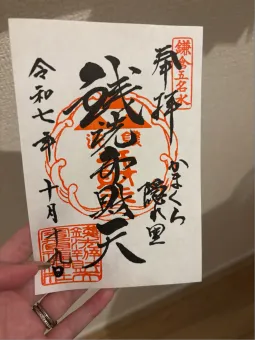 鎌倉五名水
奉拝
かまくら
隠れ里
銭洗弁財天
令和七年十月十九日